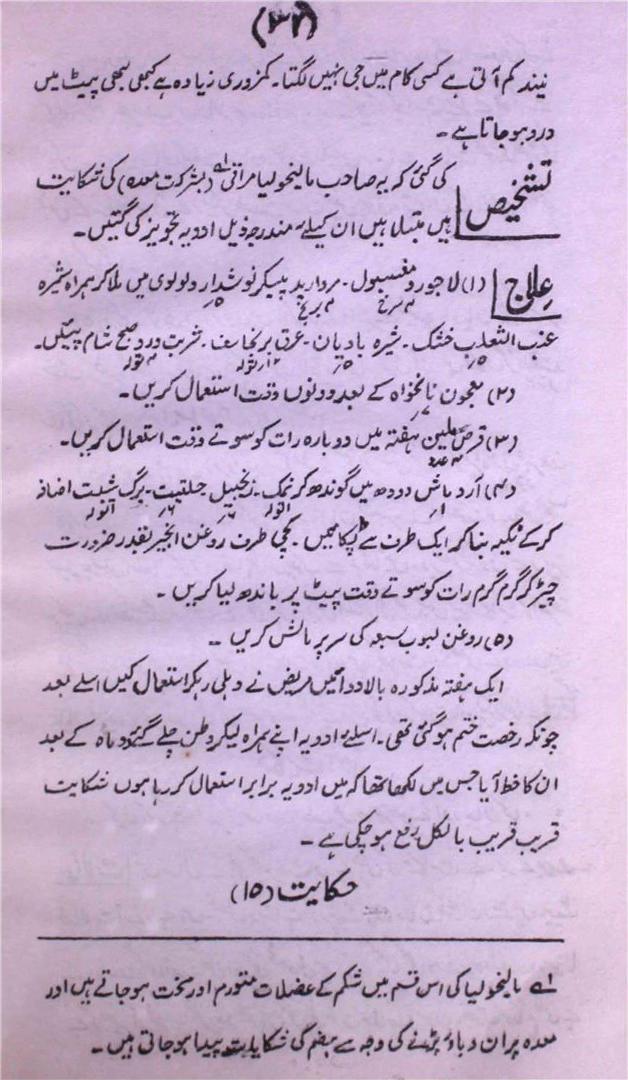 (۳۲)
نیند کم آتی ہے کسی کام میں جی نہیں لگتا۔ کمزوری زیادہ ہے کبھی کبھی پیٹ میں
درد ہو جاتا ہے۔
تشخیص کی گئی کہ یہ صاحب مالیخولیا مراقی ؎۱ (بشرکت معدہ) کی شکایت
میں مبتلا ہیں ان کیلئے مندرجہ ذیل ادویہ تجویز کی گئیں۔
علاج (۱) لاجورد مغسول۔ مروارید پیسکر نوشدارو لولوی میں ملاکر ہمراہ شیرہ
عنب الثعلب خشک۔ شیرہ بادیان۔ عرق برنجاسف۔ شربت ورد صبح شام پئیں۔
(۲) معجون نانخواہ کے بعد دونوں وقت استعمال کریں۔
(۳) قرص ملین ہفتہ میں دوبارہ رات کو سوتے وقت استعمال کریں۔
۲ عدد
(۴) آرد ماش دودھ میں گوندھ کر نمک۔ زنجبیل حلتیت۔ برگ شبت اضافہ
کر کے ٹکیہ بنا کر ایک طرف سے پکائیں۔ کچی طرف روغن انجیر بقدر ضرورت
چپڑ کر گرم گرم رات کو سوتے وقت پیٹ پر باندھ لیا کریں۔
(۵) روغن لبوب سبعہ کی سر پر مالش کریں۔
ایک ہفتہ مذکورہ بالا دوائیں مریض نے دہلی رہکر استعمال کیں اسلے بعد
چونکہ رخصت ختم ہوگئی تھی۔ اسلئے ادویہ اپنے ہمراہ لیکر وطن چلے گئے دو ماہ کے بعد
ان کا خط آیا جس میں لکھا تھا کہ میں ادویہ برابر استعمال کر رہا ہوں شکایت
قریب قریب بالکل رفع ہو چکی ہے۔
حکایت (۱۵)
؎۱ مالیخولیا کی اس قسم میں شکم کے عضلات متورم اور سخت ہو جاتے ہیں اور
معدہ پر ان دباؤ پڑنے کی وجہ سے ہضم کی شکایات پیدا ہو جاتی ہیں۔